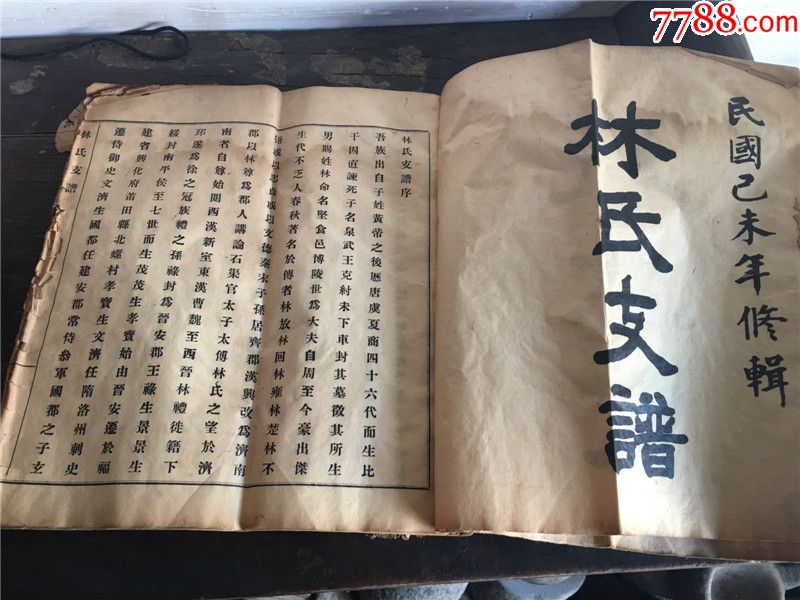 7788.com
民國己未年修輯
林氏支譜
林氏支譜序
吾族出自子姓黃帝之後歷唐虞夏商四十六代而生比
干因直諫死子名泉武王克紂未下車封其墓徵其所生
男賜姓林命名堅食邑博陵世爲大夫自周至今豪出傑
生代不乏人春秋著名於傳者林放林回林雍林楚林不
或以忠貞或以文德秦末子孫居齊郡漢興改爲濟南
郡以林尊爲郡人講論石渠官太子太傅林氏之望於濟
南者自尊始閱西漢新室東漢曹魏至西晉林禮徙籍下
邳遂爲徐之冠族禮之孫祿封爲晉安郡王祿生景景生
綏封南平侯至七世而生茂茂生孝寶始由晉安遷於福
建省興化府莆田縣北螺村孝寶生文濟任隋洛州刺史
遷侍御史文濟生國都任建安郡常侍叅軍國都之子玄
林氏支譜